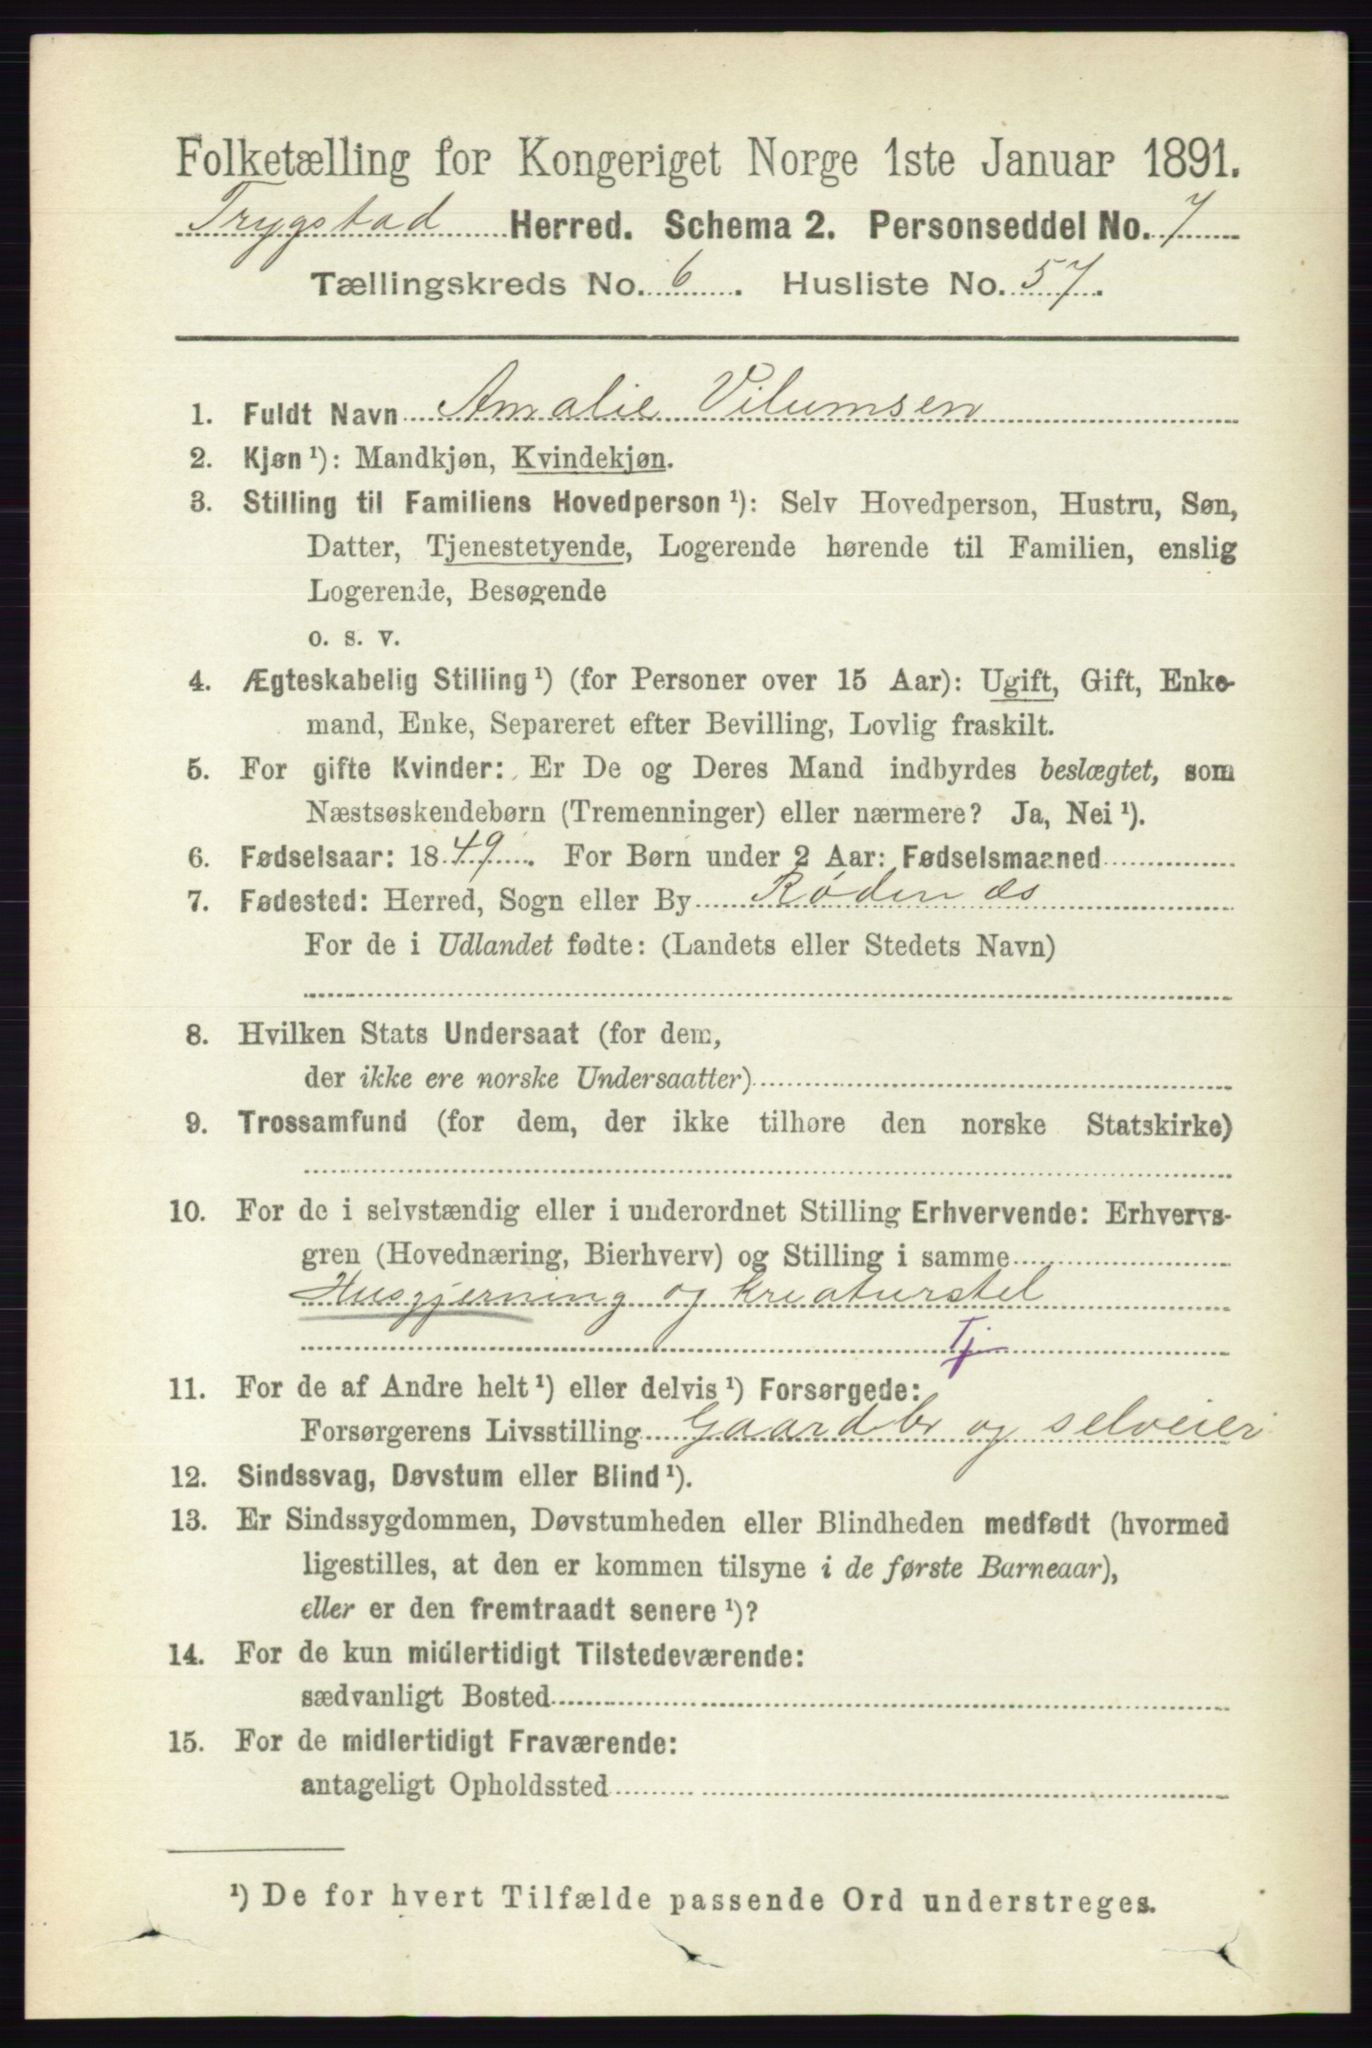 Folketælling for Kongeriget Norge 1ste Januar 1891.
Trygstad Herred. Schema 2. Personseddel No. 7
Tællingskreds No. 6. Husliste No. 57.
1. Fuldt Navn Amalie Vilumsen
2. Kjøn ¹): Mandkjøn, Kvindekjøn.
3. Stilling til Familiens Hovedperson ¹): Selv Hovedperson, Hustru, Søn,
Datter, Tjenestetyende, Logerende hørende til Familien, enslig
Logerende, Besøgende
o. s. v.
4. Ægteskabelig Stilling ¹) (for Personer over 15 Aar): Ugift, Gift, Enke-
mand, Enke, Separeret efter Bevilling, Lovlig fraskilt.
5. For gifte Kvinder: Er De og Deres Mand indbyrdes beslægtet, som
Næstsøskendebørn (Tremenninger) eller nærmere? Ja, Nei ¹).
6. Fødselsaar: 1849. For Børn under 2 Aar: Fødselsmaaned
7. Fødested: Herred, Sogn eller By Rødenæs
For de i Udlandet fødte: (Landets eller Stedets Navn)
8. Hvilken Stats Undersaat (for dem,
der ikke ere norske Undersaatter)
9. Trossamfund (for dem, der ikke tilhøre den norske Statskirke)
10. For de i selvstændig eller i underordnet Stilling Erhvervende: Erhvervs-
gren (Hovednæring, Bierhverv) og Stilling i samme
Husgjerning og Kreaturstel
Tj
11. For de af Andre helt ¹) eller delvis ¹) Forsørgede:
Forsørgerens Livsstilling Gaardbr og selveier
12. Sindssvag, Døvstum eller Blind ¹).
13. Er Sindssygdommen, Døvstumheden eller Blindheden medfødt (hvormed
ligestilles, at den er kommen tilsyne i de første Barneaar),
eller er den fremtraadt senere ¹)?
14. For de kun midlertidigt Tilstedeværende:
sædvanligt Bosted
15. For de midlertidigt Fraværende:
antageligt Opholdssted
¹) De for hvert Tilfælde passende Ord understreges.